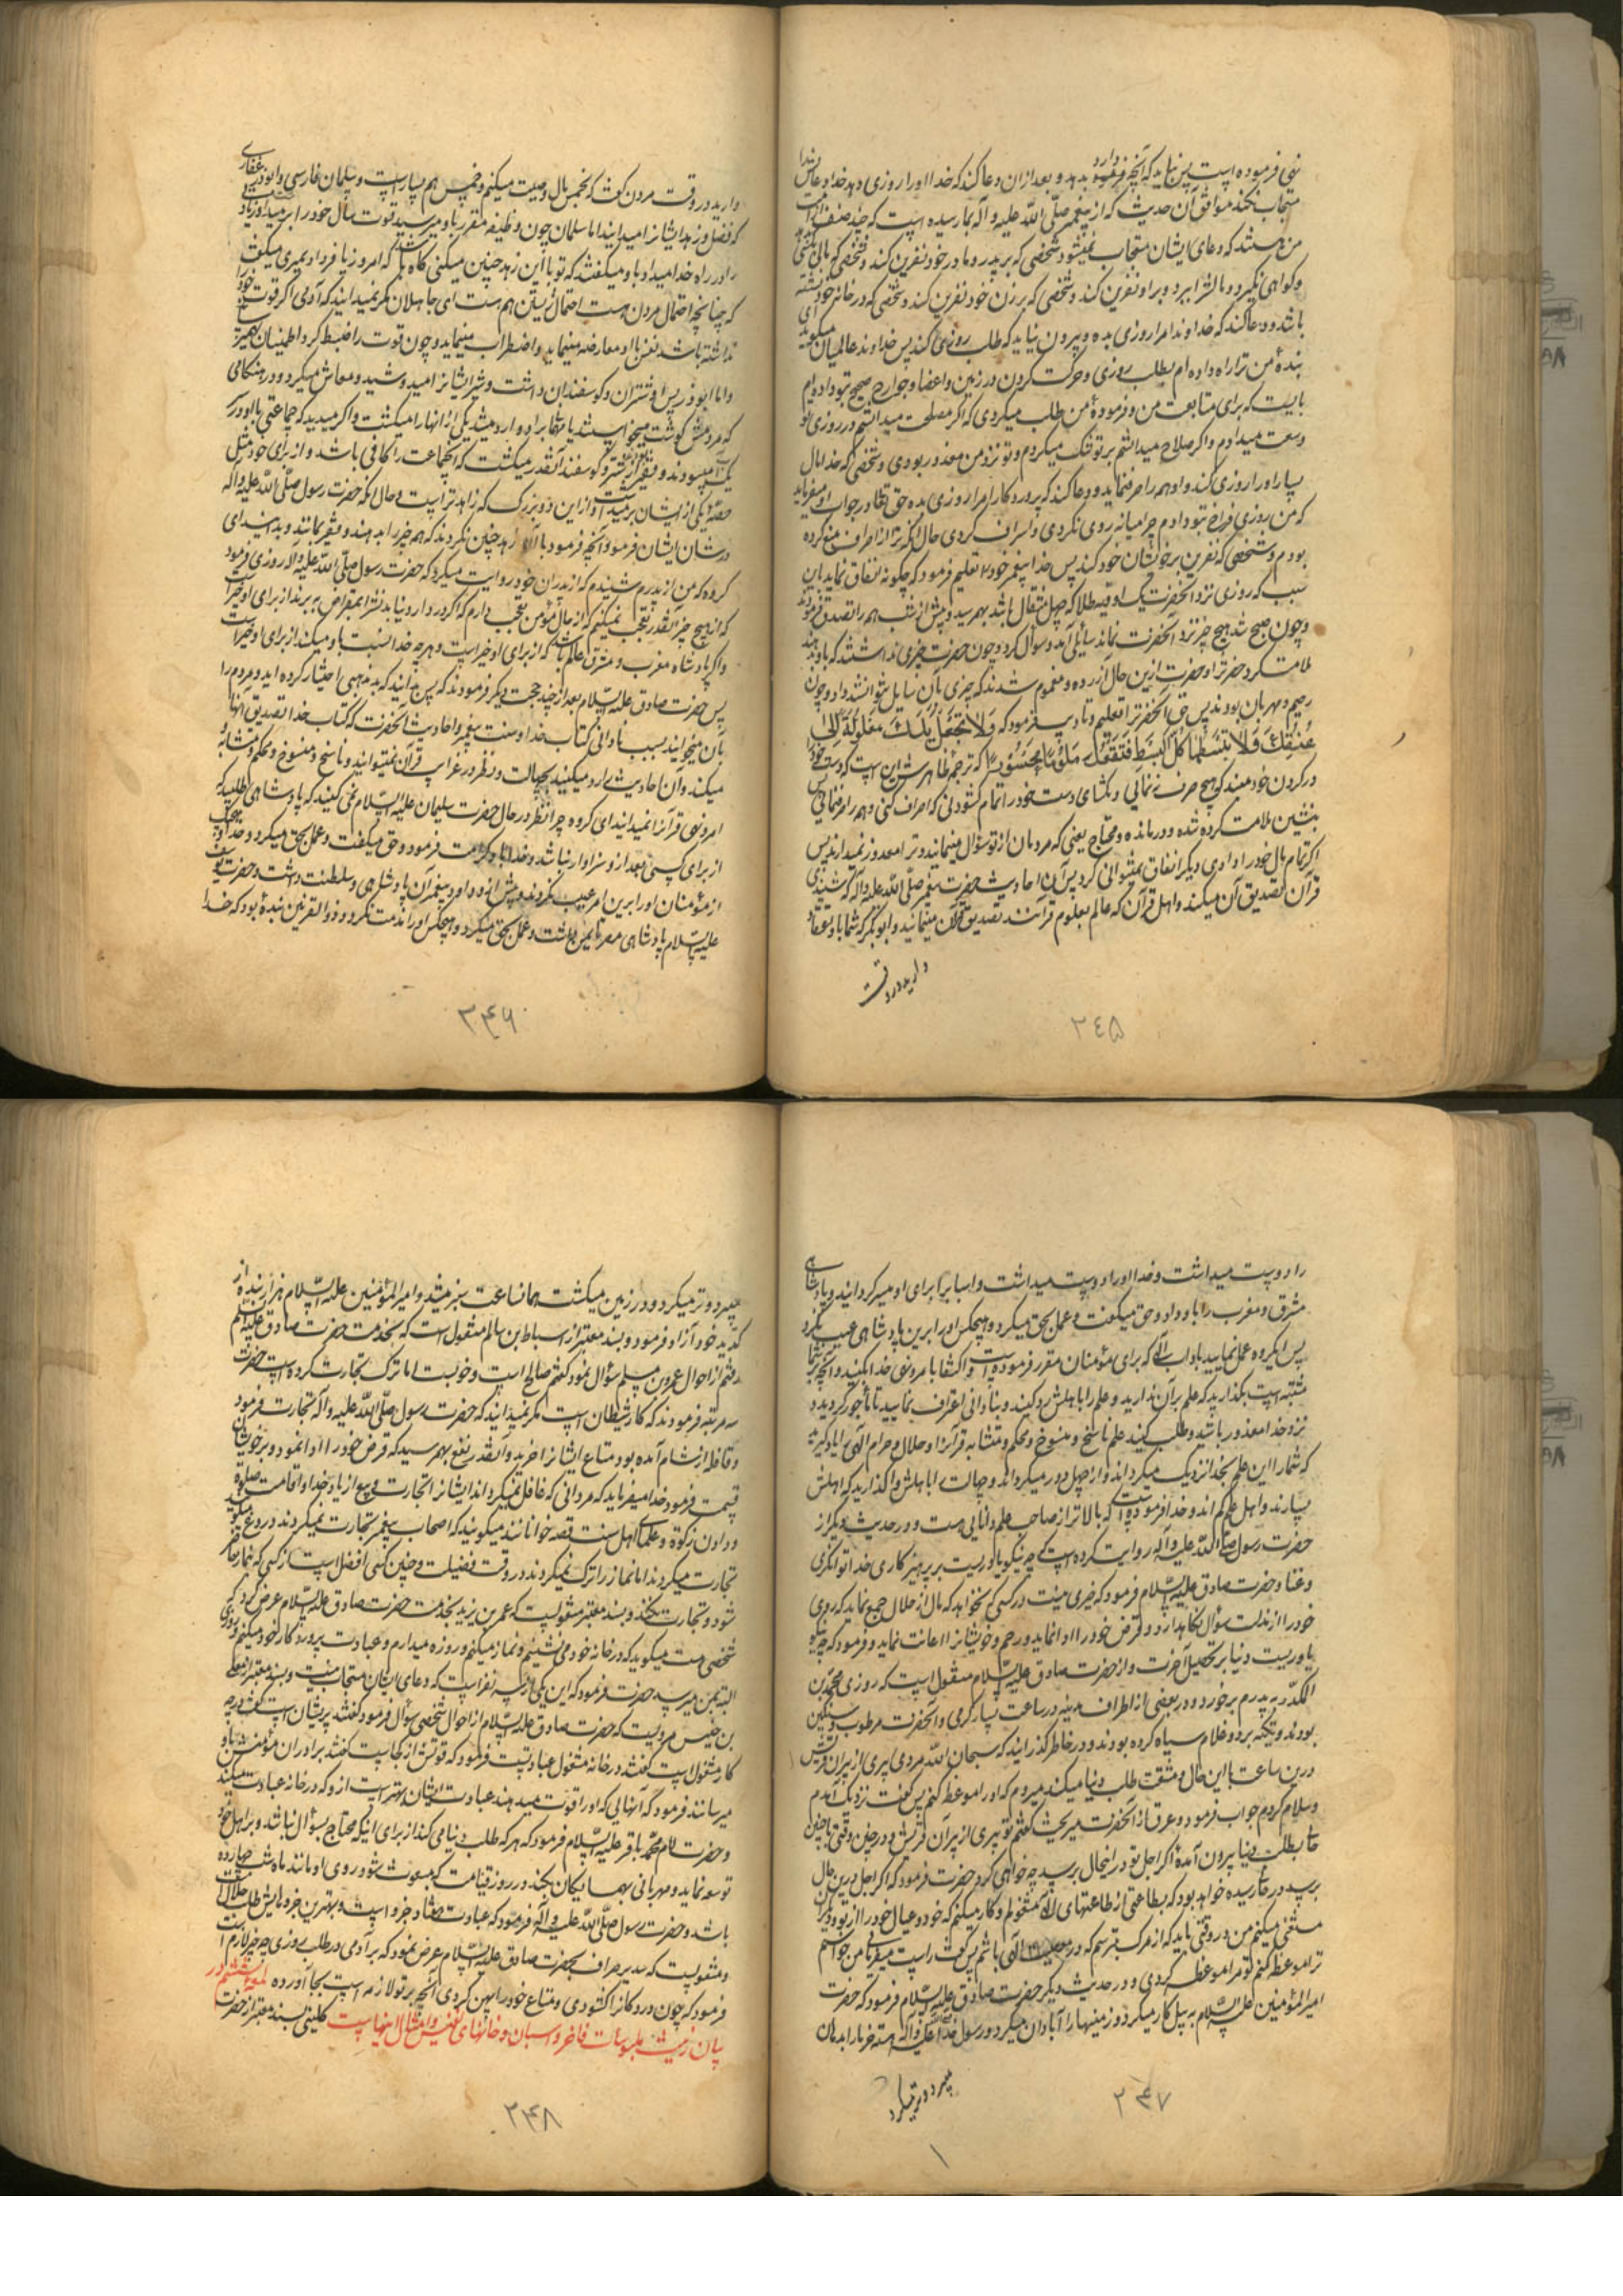 نهی فرموده است پس نباید که آنچه دارد بدهد و بعد ازان دعا کند که خدا او را روزی دهد خدا دعاش را
مستجاب نکند موافق آن حدیث که از پیغمبر صلّی اللّه علیه و آله بما رسیده است که چند صنف از امت
من هستند که دعای ایشان مستجاب نمیشود شخصی که بر پدر و مادر خود نفرین کند و شخصی که مالی بکسی دهد
و گواهی نگیرد و مالش را ببرد و براو نفرین کند و شخصی که بر زن خود نفرین کند و شخصی که در خانه خود نشسته
باشد و دعا کند که خداوندا مرا روزی بده و بیرون نیاید که طلب روزی کند پس خداوند عالمیان میگوید ای
بنده من ترا راه داده ام بطلب روزی و حرکت کردن در زمین و اعضا و جوارح صحیح بتو داده ام
بایست که برای متابعت من و فرموده من طلب میکردی که اگر مصلحت میدانستم در روزی تو
وسعت میدادم و اگر صلاح میدانستم بر تو تنک میکردم و تو نزد من معذور بودی و شخصی که خدا مال
بسیار او را روزی کند و او همه را صرف نماید و دعا کند که پروردگارا مرا روزی بده حق تعالی در جواب او میفرماید
که من روزی فراخ بتو دادم چرا میانه روی نکردی و اسراف کردی حال آنکه ترا از اسراف منع کرده
بودم و شخصی که نفرین بر خویشان خود کند پس خدا پیغمبر خود را تعلیم فرمود که چگونه انفاق نماید باین
سبب که روزی نزد آنحضرت یک اوقیه طلا که چهل مثقال باشد بهم رسید و پیش از شب همه را تصدق فرمودند
و چون صبح شد هیچ چیز نزد آنحضرت نماند سائلی آمد و سوال کرد و چون حضرت چیزی نداشتند که باو دهند
ملامت کرد حضرترا و حضرت ازین حال آزرده و مغموم شدند که چیزی بآن سایل نتوانستند داد و چون
رحیم و مهربان بودند پس حق آنحضرترا تعلیم و تادیب فرمود که وَلاتَجْعَلْ یَدَكَ مَغْلُولَةً اِلیٰ
عُنُقِكَ وَلا تَبْسُطْها كُلَّ الْبَسْطِ فَتَقْعُدَ مَلُوماً مَحْسُوراً که ترجمه ظاهرش این است که دست خود را
در گردن خود مبند که هیچ صرف ننمائی و مگشای دست خود را تمام گشودنی که اسراف کنی و همه را صرف نمائی پس
بنشینی ملامت کرده شده و درمانده و محتاج یعنی که مردمان از تو سؤال مینمایند و ترا معذور نمیدارند پس
اگر تمام مال خود را دادی دیگر انفاق نمیتوانی کرد پس آن احادیث حضرت پیغمبر صلّی اللّه علیه و آله که شنیدی
قرآن تصدیق آن میکند و اهل قرآن که عالم بعلوم قرآنند تصدیق قرآن مینمایند و ابوبکر که شما باو اعتقاد
دارید در وقت
۲۴۵
دارید در وقت مردن گفت که بخمس مال وصیت میکنم و خمس هم بسیار است و سلمان فارسی و ابوذر غفاری
که فضل و زهد ایشانرا میدانید اما سلمان چون وظیفه مقرر باو میرسید قوت سال خود را بر میداشت و زیاد
را در راه خدا میداد باو میگفتند که تو با این زهد چنین میکنی گاه باشد که امروز یا فردا بمیری میگفت
که چنانچه احتمال مردن هست احتمال زیستن هم هست ای جاهلان مگر نمیدانید که آدمی اگر قوت خود را
نداشته باشد نفس با او معارضه مینماید و اضطراب مینماید و چون قوت را ضبط کرد اطمینان بهم میرساند
و اما ابوذر پس او شتران و گوسفندان داشت و شیر ایشانرا میدوشید و معاش میکرد و در هنگامی
که مردمش گوشت میخواستند یا مهمان براو وارد میشد یکی از آنها را میکشت و اگر میدید که جماعتی با او در
یک آب میبودند و فقیرند از شتر و گوسفند آنقدر میکشت که آنجماعت را کافی باشد و از برای خود مثل
حصه یکی از ایشان بر میداشت و از این دو بزرگ که زاهدتر است و حال آنکه حضرت رسول صلّی اللّه علیه و آله
در شان ایشان فرمود آنچه فرمود با آن زهد چنین نکردند که همه چیز را بدهند و فقیر بمانند و بدانید ای
گروه که من از پدرم شنیدم که از پدران خود روایت میکرد که حضرت رسول صلّی اللّه علیه و آله روزی فرمود
که از هیچ چیز آنقدر تعجب نمیکنم که از حال مؤمن تعجب دارم که اگر در دار دنیا بدنشرا بمقراض ببرند از برای او خیر است
و اگر پادشاه مغرب و مشرق عالم باشد که از برای او خیر است و هر چه خدا نسبت باو میکند از برای او خیر است
پس حضرت صادق علیه السّلام بعد از چند حجت دیگر فرمودند که پس بدانید که بد مذهبی اختیار کرده اید و مردم را
بآن میخوانید بسبب نادانی کتاب خدا و سنت پیغمبر و احادیث آنحضرت که کتاب خدا تصدیق آنها
میکند و آن احادیث را رد میکنید بجهالت و نظر در غرایب قرآن نمیتوانید و ناسخ و منسوخ و محکم و متشابه
امر و نهی قرآنرا نمیدانید ای گروه چرا نظر در حال حضرت سلیمان علیه السّلام نمی کنید که پادشاهی طلبید که
از برای کسی بعد از او سزاوار نباشد و خدا باو کرامت فرمود و حق میگفت و عمل بحق میکرد و خدا و هیچیک
از مؤمنان او را برین امر عیب نکردند و پیش ازو داود پیغمبر آن پادشاهی و سلطنت داشت و حضرت یوسف
علیه السّلام پادشاهی مصر تا یمن داشت و عمل بحق میکرد و هیچکس او را مذمت نکرد و ذوالقرنین بنده بود که خدا
۲۴۶
را دوست میداشت و خدا او را دوست میداشت و اسبابرا برای او میسر گردانید و پادشاهی
مشرق و مغرب را باو داد و حق میگفت و عمل بحق میکرد و هیچکس او را برین پادشاهی عیب نکرد
پس ایگروه عمل نمایید بآداب الٓهی که برای مؤمنان مقرر فرموده است و اکتفا بامر و نهی خدا بکنید و آنچه بر شما
مشتبه است بگذارید که علم برآن ندارید و علم را باهلش رد کنید و بنادانی اعتراف نمایید تا مأجور گردید و
نزد خدا معذور باشید و طلب کنید علم ناسخ و منسوخ و محکم و متشابه قرآنرا و حلال و حرام الٓهی را یاد گیرید
که شما را این علم بخدا نزدیک میگرداند و از جهل دور میگرداند و جهالت را باهلش واگذارید که اهلش
بسیارند و اهل علم کم اند و خدا فرموده است که بالاتر از صاحب علم دانایی هست و در حدیث دیگر از
حضرت رسول صلّی اللّه علیه و آله روایت کرده است که چه نیکو یاوریست بر پرهیزکاری خدا توانگری
و غنا و حضرت صادق علیه السّلام فرمود که خیری نیست در کسی که نخواهد که مال از حلال جمع نماید که روی
خود را از مذلت سؤال نگاهدارد و قرض خود را ادا نماید و رحم و خویشانرا اعانت نماید و فرمود که چه نیکو
یاوریست دنیا بر تحصیل آخرت و از حضرت صادق علیه السّلام منقول است که روزی محمّد بن
المنکدر به پدرم بر خورد در بعضی از اطراف مدینه در ساعت بسیار گرمی و آنحضرت مرطوب و سنگین
بودند و تکیه بر دو غلام سیاه کرده بودند و در خاطر گذرانید که سبحان اللّه مردمی پیری از پیران قریش
درین ساعت با این حال و مشقت طلب دنیا میکند میروم که او را موعظه کنم پس گفت نزدیک آمدم
و سلام کردم جواب فرمود و عرق از آنحضرت میریخت گفتم تو پیری از پیران قریش و در چنین وقتی با چنین
حال بطلب دنیا بیرون آمدۀ اگر اجل تو در اینحال برسد چه خواهی کرد حضرت فرمود که اگر اجل درین حال
برسد در حالی رسیده خواهد بود که بطاعتی از طاعتهای الٓهی مشغولم و کار میکنم که خود و عیال خود را از تو و دیگران
مستغنی میکنم من در وقتی باید که از مرگ بترسم که در معصیت الٓهی باشم پس گفت راست میفرمائی من خواستم
ترا موعظه کنم تو مرا موعظه کردی و در حدیث دیگر حضرت صادق علیه السّلام فرمود که حضرت
امیر المؤمنین علیه السّلام به بیل کار میکرد و زمینها را آبادان میکرد و رسول خدا صلّی اللّه علیه و آله هسته خرما را بدهان
میبرد و تر میکرد
۲۴۷
میبرد و تر میکرد و در زمین میکشت همان ساعت سبز میشد و امیر المؤمنین علیه السّلام هزار بنده از
کدّ ید خود آزاد فرمود و بسند معتبر از اسباط بن سالم منقول است که بخدمت حضرت صادق علیه السّلام
رفتم از احوال عمر بن مسلم سؤال نمود گفتم صالح است و خوبست اما ترک تجارت کرده است حضرت
سه مرتبه فرمودند که کار شیطان است مگر نمیدانید که حضرت رسول صلّی اللّه علیه و آله تجارت فرمود
و قافله از شام آمده بود متاع ایشانرا خرید و آنقدر نفع بهمرسید که قرض خود را ادا نمود و بر خویشان
قسمت فرمود خدا میفرماید که مردانی که غافل نمیگرداند ایشانرا تجارت و بیع از یاد خدا و اقامت صلوة
و دادن زکوة و علمای اهل سنت قصه خوانانند میگویند که اصحاب پیغمبر تجارت نمیکردند دروغ میگویند
تجارت میکردند اما نماز را ترک نمیکردند در وقت فضیلت و چنین کسی افضل است از کسی که نماز حاضر
شود و تجارت نکند و بسند معتبر منقولست که عمر بن یزید بخدمت حضرت صادق علیه السّلام عرض کرد که
شخصی هست میگوید که در خانه خود می نشینم و نماز میکنم و روزه میدارم و عبادت پروردگار خود میکنم و روزی
البته بمن میرسد حضرت فرمود که این یکی از سه نفر است که دعای ایشان مستجاب نیست و بسند معتبر از معلی
بن خنیس مرویست که حضرت صادق علیه السّلام از احوال شخصی سؤال فرمود گفتند پریشان است گفت در چه
کار مشغول است گفتند در خانه مشغول عبادتست فرمود که قوتش از کجاست گفتند برادران مؤمنش باو
میرسانند فرمود که آنهایی که او را قوت میدهند عبادت ایشان بهتر است ازو که در خانه عبادت میکند
و حضرت امام محمّد باقر علیه السّلام فرمود که هر که طلب دنیا می کند از برای اینکه محتاج بسؤال نباشد و بر اهل خود
توسعه نماید و مهربانی بهمسایگان بکند در روز قیامت که مبعوث شود روی او مانند ماه شب چهارده
باشد و حضرت رسول صلّی اللّه علیه و آله فرمود که عبادت هفتاد جزو است و بهترین جزوهایش طلب حلال است
و منقولست که سدیر صراف بحضرت صادق علیه السّلام عرض نمود که بر آدمی در طلب روزی چه چیز لازم است
فرمود که چون در دکانرا گشودی و متاع خود را پهن کردی آنچه بر تو لازم است بجا آورده لمعه ششم در
بیان زینت بملبوسات فاخر و اسبان و خانهای نفیس و امثال اینهاست کلینی بسند معتبر از حضرت
۲۴۸